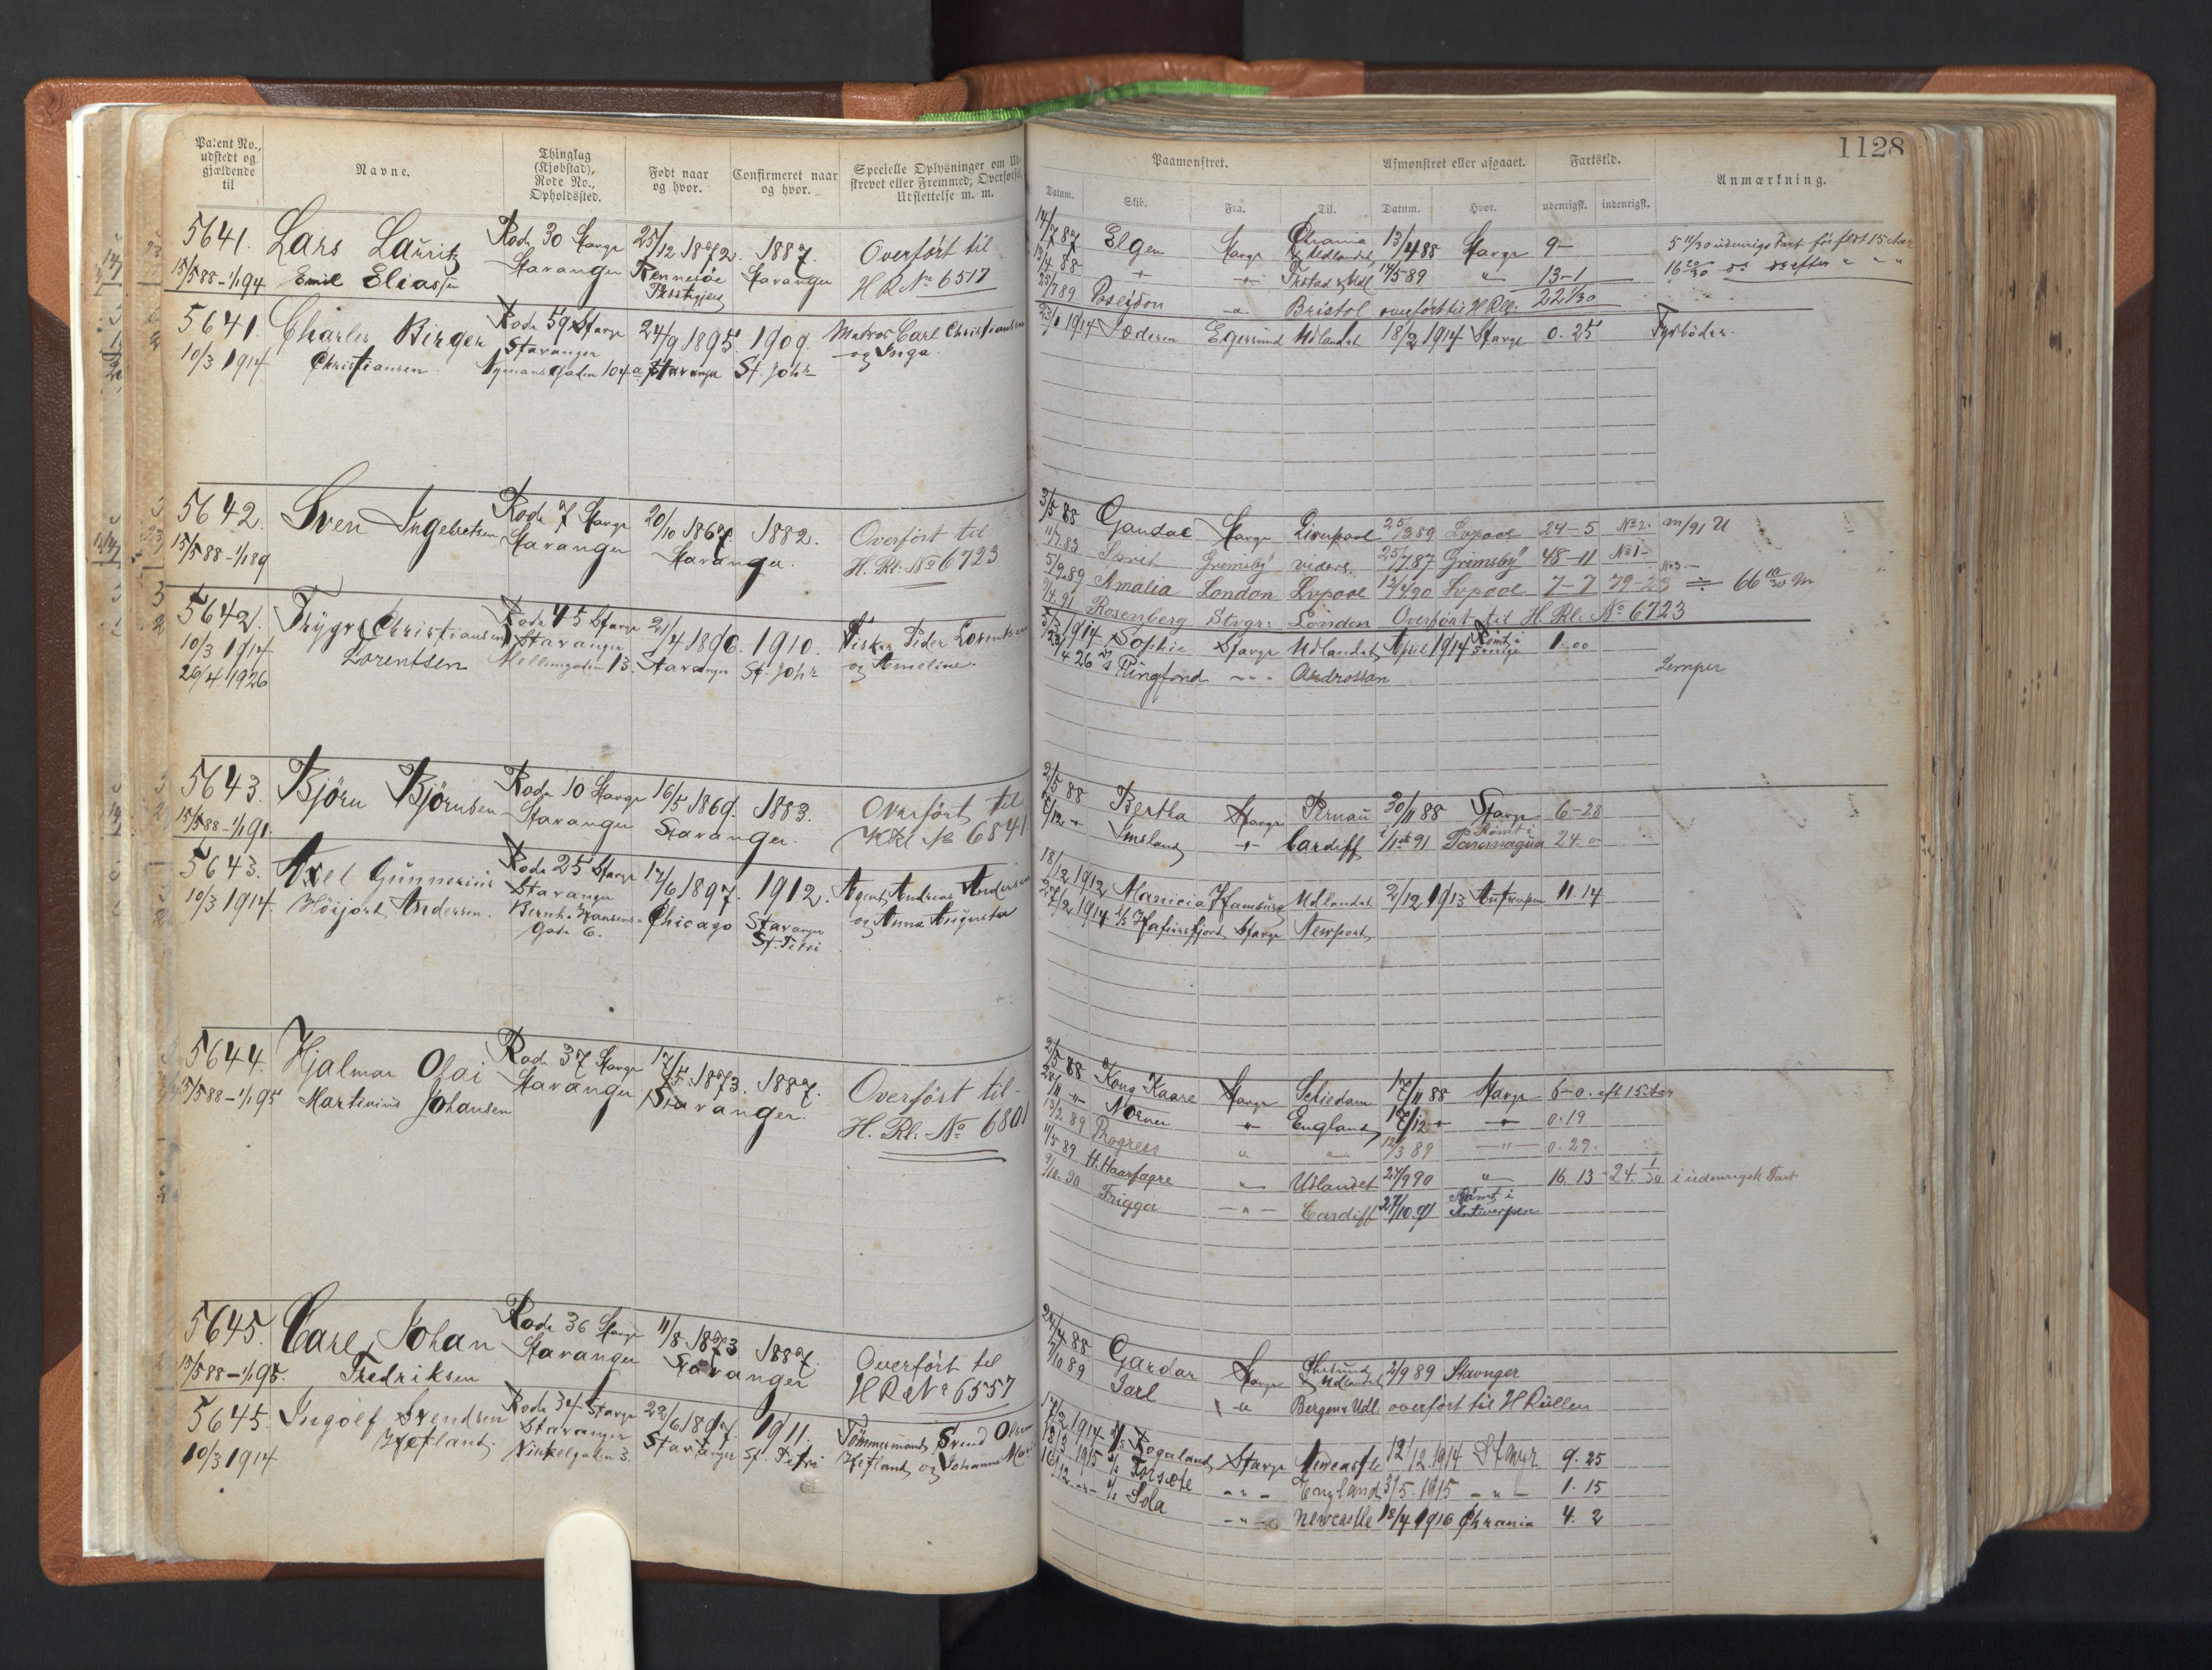 1128
Patent No., udstedt og gjældende til
Navne.
Thinglag (Kjøbstad), Rode No., Opholdssted.
Født naar og hvor.
Confirmeret naar og hvor.
Specielle Oplysninger om
strevet eller Fremmed; Overførsel
Udslettelse m. m.
Paamønstret.
Afmønstret eller afgaaet.
Fartstid.
Anmærkning.
Datum. Skib. Fra. Til. Datum. Hvor. udenrigsk. indenrigsk.
5641. Lars Lauritz Rode 30 Stavgr 25/12 1872. 1887. Overført til
15/5 88 - 1/1 94 Emil Eliassen Stavanger Rennesöe Stavanger H R No 6517
14/7 87 Elgen Stavgr Chrania & Udlandet 13/4 88 Stavgr 9-
13/4 88 " " Frstad & Udl 14/5 89 " 13-1
25/7 89 Poseidon " Bristol overført til H Rll. 22 1/30
5 11/30 udenrigs Fart før fldt 15 Aar
16 20/30 do efter " " "
5641. Charles Birger Rode 59 Stavgr 24/9 1895. 1909. Matros Carl Christiansen
10/3 1914 Christiansen. Stavanger Nymansgaden 104 a Stavanger St. Joh. og Inga.
23/1 1914 Söderen Egersund Udlandet 18/2 1914 Stavgr 0. 25 Fyrböder.
5642. Sven Ingebretsen Rode 7 Stavgr 20/10 1867. 1882. Overført til
15/5 88 - 1/1 89 Stavanger Stavanger. H. Rl: No 6723
3/5 88 Gandal Stavgr Liverpool 25/3 89 Lvpool 24-5 No 2. m/91 U
11/7 83 Sprit Grimsby viders. 25/7 87 Grimsby 48-11 No 1-
5/9 89 Amalia London Lvpool 12/4 90 Lvpool 7-7 79-23 ÷ 66 10/30 M
9/4. 91 Rosenberg Stvgr: London Overført til H. Rl. No 6723
5642. Trygve Christiansen Rode 45 Stavgr 21/4 1896. 1910. Fisker Peder Lorentsen
10/3 1914 Lorentsen Stavanger Stavanger St. Joh. og Ameline.
26/4 1926 Mellemgaden 13.
3/3 1914 Sophie Stavgr Udlandet April 1914 Rømt i Sverige 1. 00
23/4 26 Ringfond - " - Ardrossan Lemper
5643. Björn Björnsen Rode 10 Stavgr 16/5 1869. 1883. Overført til
15/5 88 - 1/1 91. Stavanger Stavanger. H Rl No 6841
2/5 88 Bertha Stavgr Pernau 30/11 88 Stavgr 6-28
6/12 " Imsland " Cardiff 91 Rømt i 24. 0
5643. Axel Gunnerius Rode 25 Stavgr 17/6 1897. 1912. Agent Andreas Andersen
10/3 1914. Höijord Andersen. Stavanger Bernt Hansens Gade 6. Chicago Stavanger St. Petri og Anna Augusta
18/12 1912 Manicia Hamburg Udlandet 2/12 1913 Antwerpen 11. 14
27/2 1914 s/s Hafursfjord Stavgr Newport
5644. Hjalmar Olai Rode 37 Stavgr 17/5 1873. 1887. Overført til
15/5 88 - 1/1 95 Martinius Johansen Stavanger Stavanger. H. Rl: No 6801
2/5 88 Kong Kaare Stavgr Schiedam 17/11 88 Stavgr 6-0. eft 15 Aar
28/11 " Norner " England 17/12 " " 0. 19
13/2 89 Progress " " 12/3 89 - " - 0. 29.
11/5 89 H. Haarfagre " Udlandet 24/9 90 " 16. 13 - 24. 1/30 i udenrigsk Fart
9/10. 90 Frigga - " - Cardiff 27/10. 91 Rømt i Antwerpen
5645. Carl Johan Rode 36 Stavgr 11/8 1873 1887. Overført til
15/5 88 - 1/1 95. Fredriksen Stavanger Stavanger H R No 6557
24/4 88 Gardar Stavgr Chrsund & Udlandet 2/9 89 Stavnger
7/10 89 Jarl " Bergen & Udl. overført til H Rullen
5645. Ingolf Svendsen Rode 34 Stavgr 22/6 1897. 1911. Tömmermand Svend Olsen
10/3 1914 Hetland. Stavanger Nikkelgaden 3. Stavanger St. Petri Hetland og Johanne Marie
17/2 1914 s/s Rogaland Stavgr Newcastle 12/12. 1914 Stavgr 9. 25
18/3 1915 s/s Torsæte - " - England 3/5. 1915 - " - 1. 15
16/12 - " - s/s Sola - " - Newcastle 18/4 1916 Chrania 4. 2